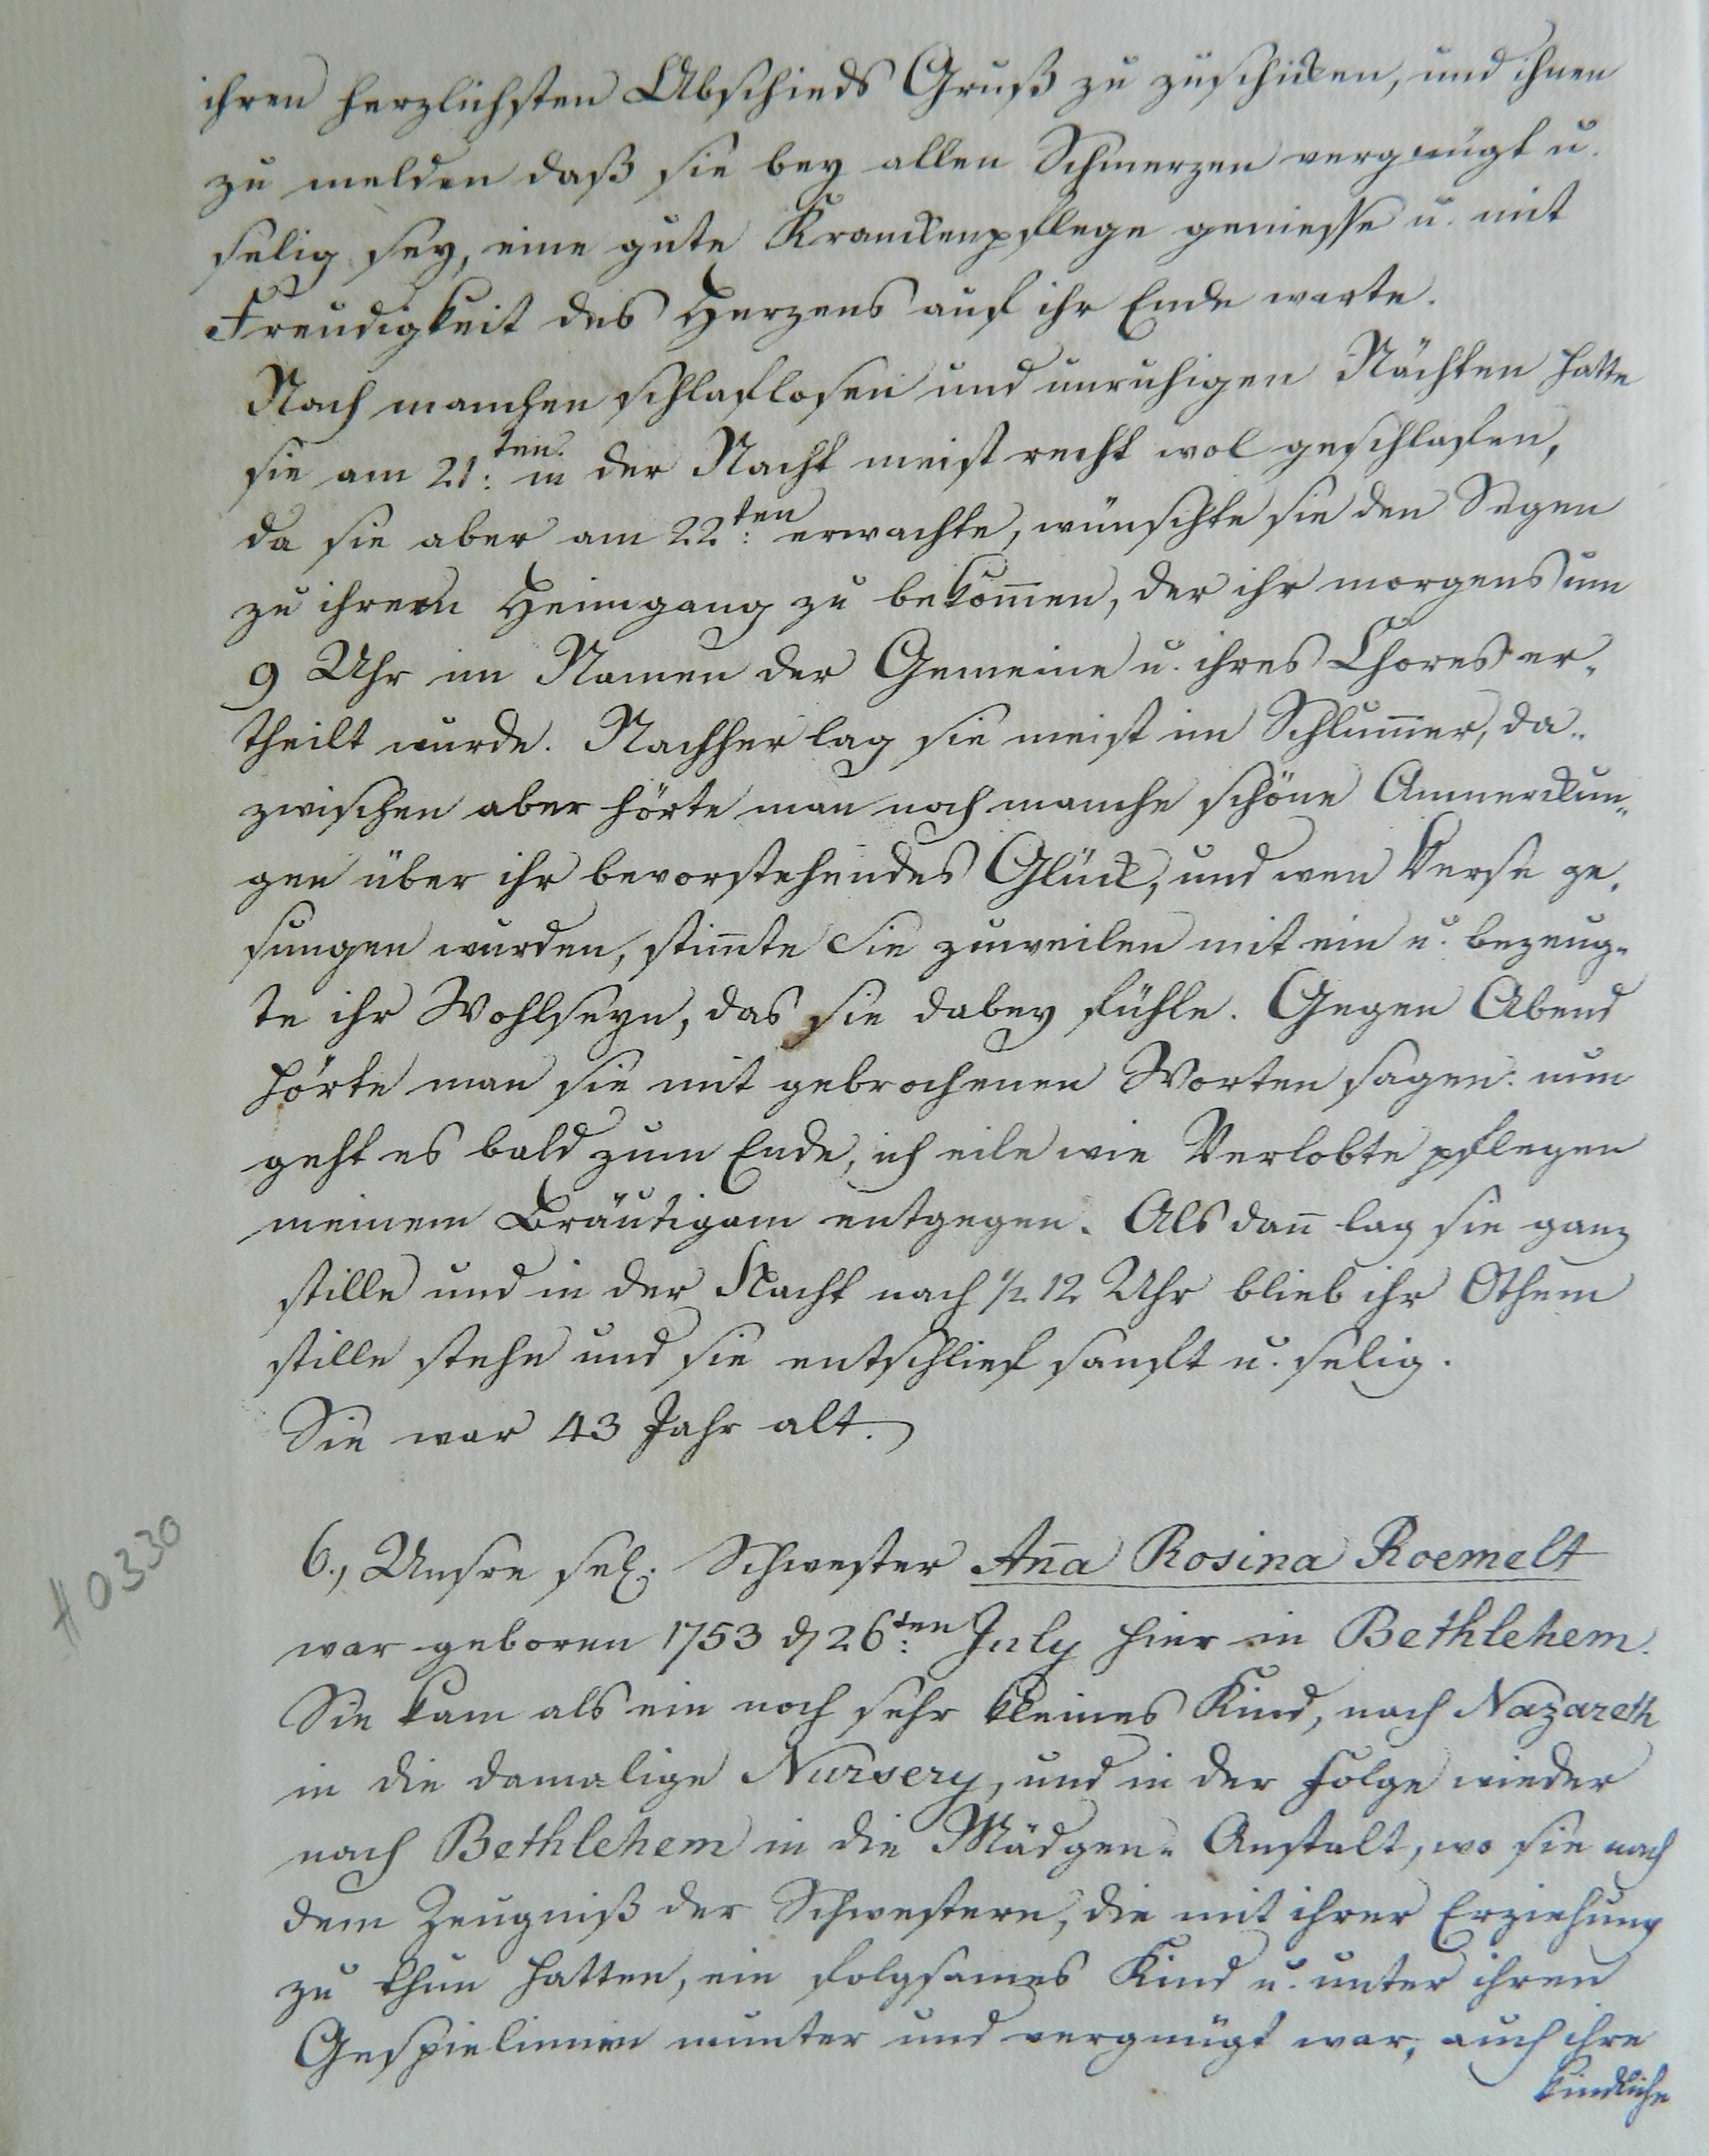 ihren herzlichsten Abschieds Gruß zu zuschicken, und ihnen
zu melden daß sie bey allen Schmerzen vergnügt u.
selig sey, eine gute Kranckenpflege geniesse u. mit
Freudigkeit des Herzens auf ihr Ende warte.
Nach manchen schlaflosen und unruhigen Nächten hatte
sie am 21:ten in der Nacht meist recht wol geschlafen,
da sie aber am 22:ten erwachte, wünschte sie den Segen
zu ihrem Heimgang zu bekom̅en, der ihr morgens um
9 Uhr im Namen der Gemeine u. ihres Chores er-
theilt wurde. Nachher lag sie meist im Schlum̅er, da-
zwischen aber hörte man noch manche schöne Anmerckun-
gen über ihr bevorstehendes Glück, und wen Verse ge-
sungen wurden, stim̅te sie zuweilen mit ein u. bezeug-
te ihr Wohlseyn, das sie dabey fühle. Gegen Abend
hörte man sie mit gebrochenen Worten sagen: nun
geht es bald zum Ende, ich eile wie Verlobte pflegen
meinem Bräutigam entgegen. Als dan̅ lag sie ganz
stille und in der Nacht nach 1/2 12 Uhr blieb ihr Othem
stille stehn und sie entschlief sanft u. selig.
Sie war 43 Jahr alt.
#0330
6., Unsre sel. Schwester An̅a Rosina Roemelt
war geboren 1753 d 26:ten July hier in Bethlehem.
Sie kam als ein noch sehr kleines Kind, nach Nazareth
in die damalige Nursery, und in der Folge wieder
nach Bethlehem in die Mädgen-Anstalt, wo sie nach
dem Zeugniß der Schwestern, die mit ihrer Erziehung
zu thun hatten, ein folgsames Kind u. unter ihren
Gespielinnen munter und vergnügt war, auch ihre
kindliche